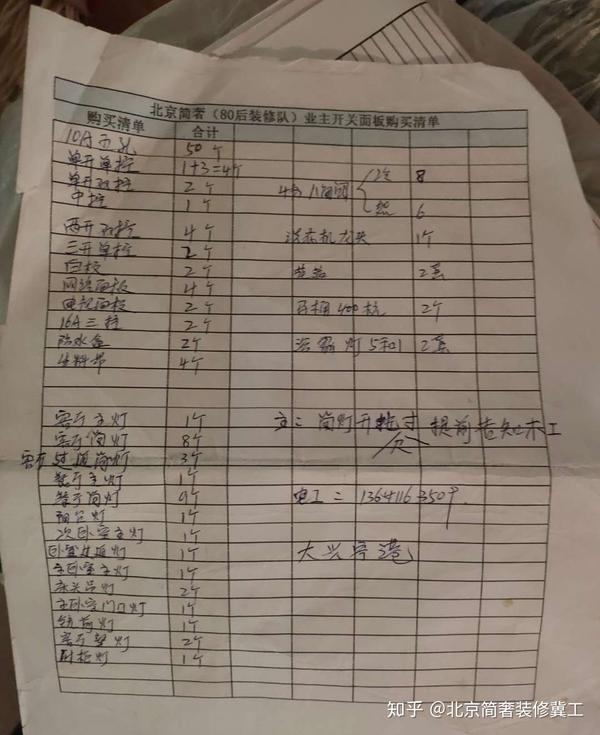 北京简奢（80后装修队）业主开关面板购买清单
购买清单 合计
10A五孔 50个
单开单控 1+3=4个
单开双控 2个 8
中控 1个 6
两开双控 4个 洗衣机龙头 1个
三开单控 2个
白板 2个 2套
网络面板 4个
电视面板 2个 马桶400坑 2个
16A三插 2个
防水盒 2个 浴霸灯5和1 2套
生料带 4个
客厅主灯 1个 主：筒灯开孔尺寸 提前告知木工
客厅筒灯 8个
客厅过道筒灯 3个
餐厅主灯 1个
餐厅筒灯 9个
阳台灯 1个
次卧室主灯 1个
卧室过道灯 1个 大兴
主卧室主灯 1个
床头吊灯 2个
主卧室门口灯 1个
镜前灯 1个
客厅壁灯 2个
厨柜灯 1个
知乎 @北京简奢装修冀工